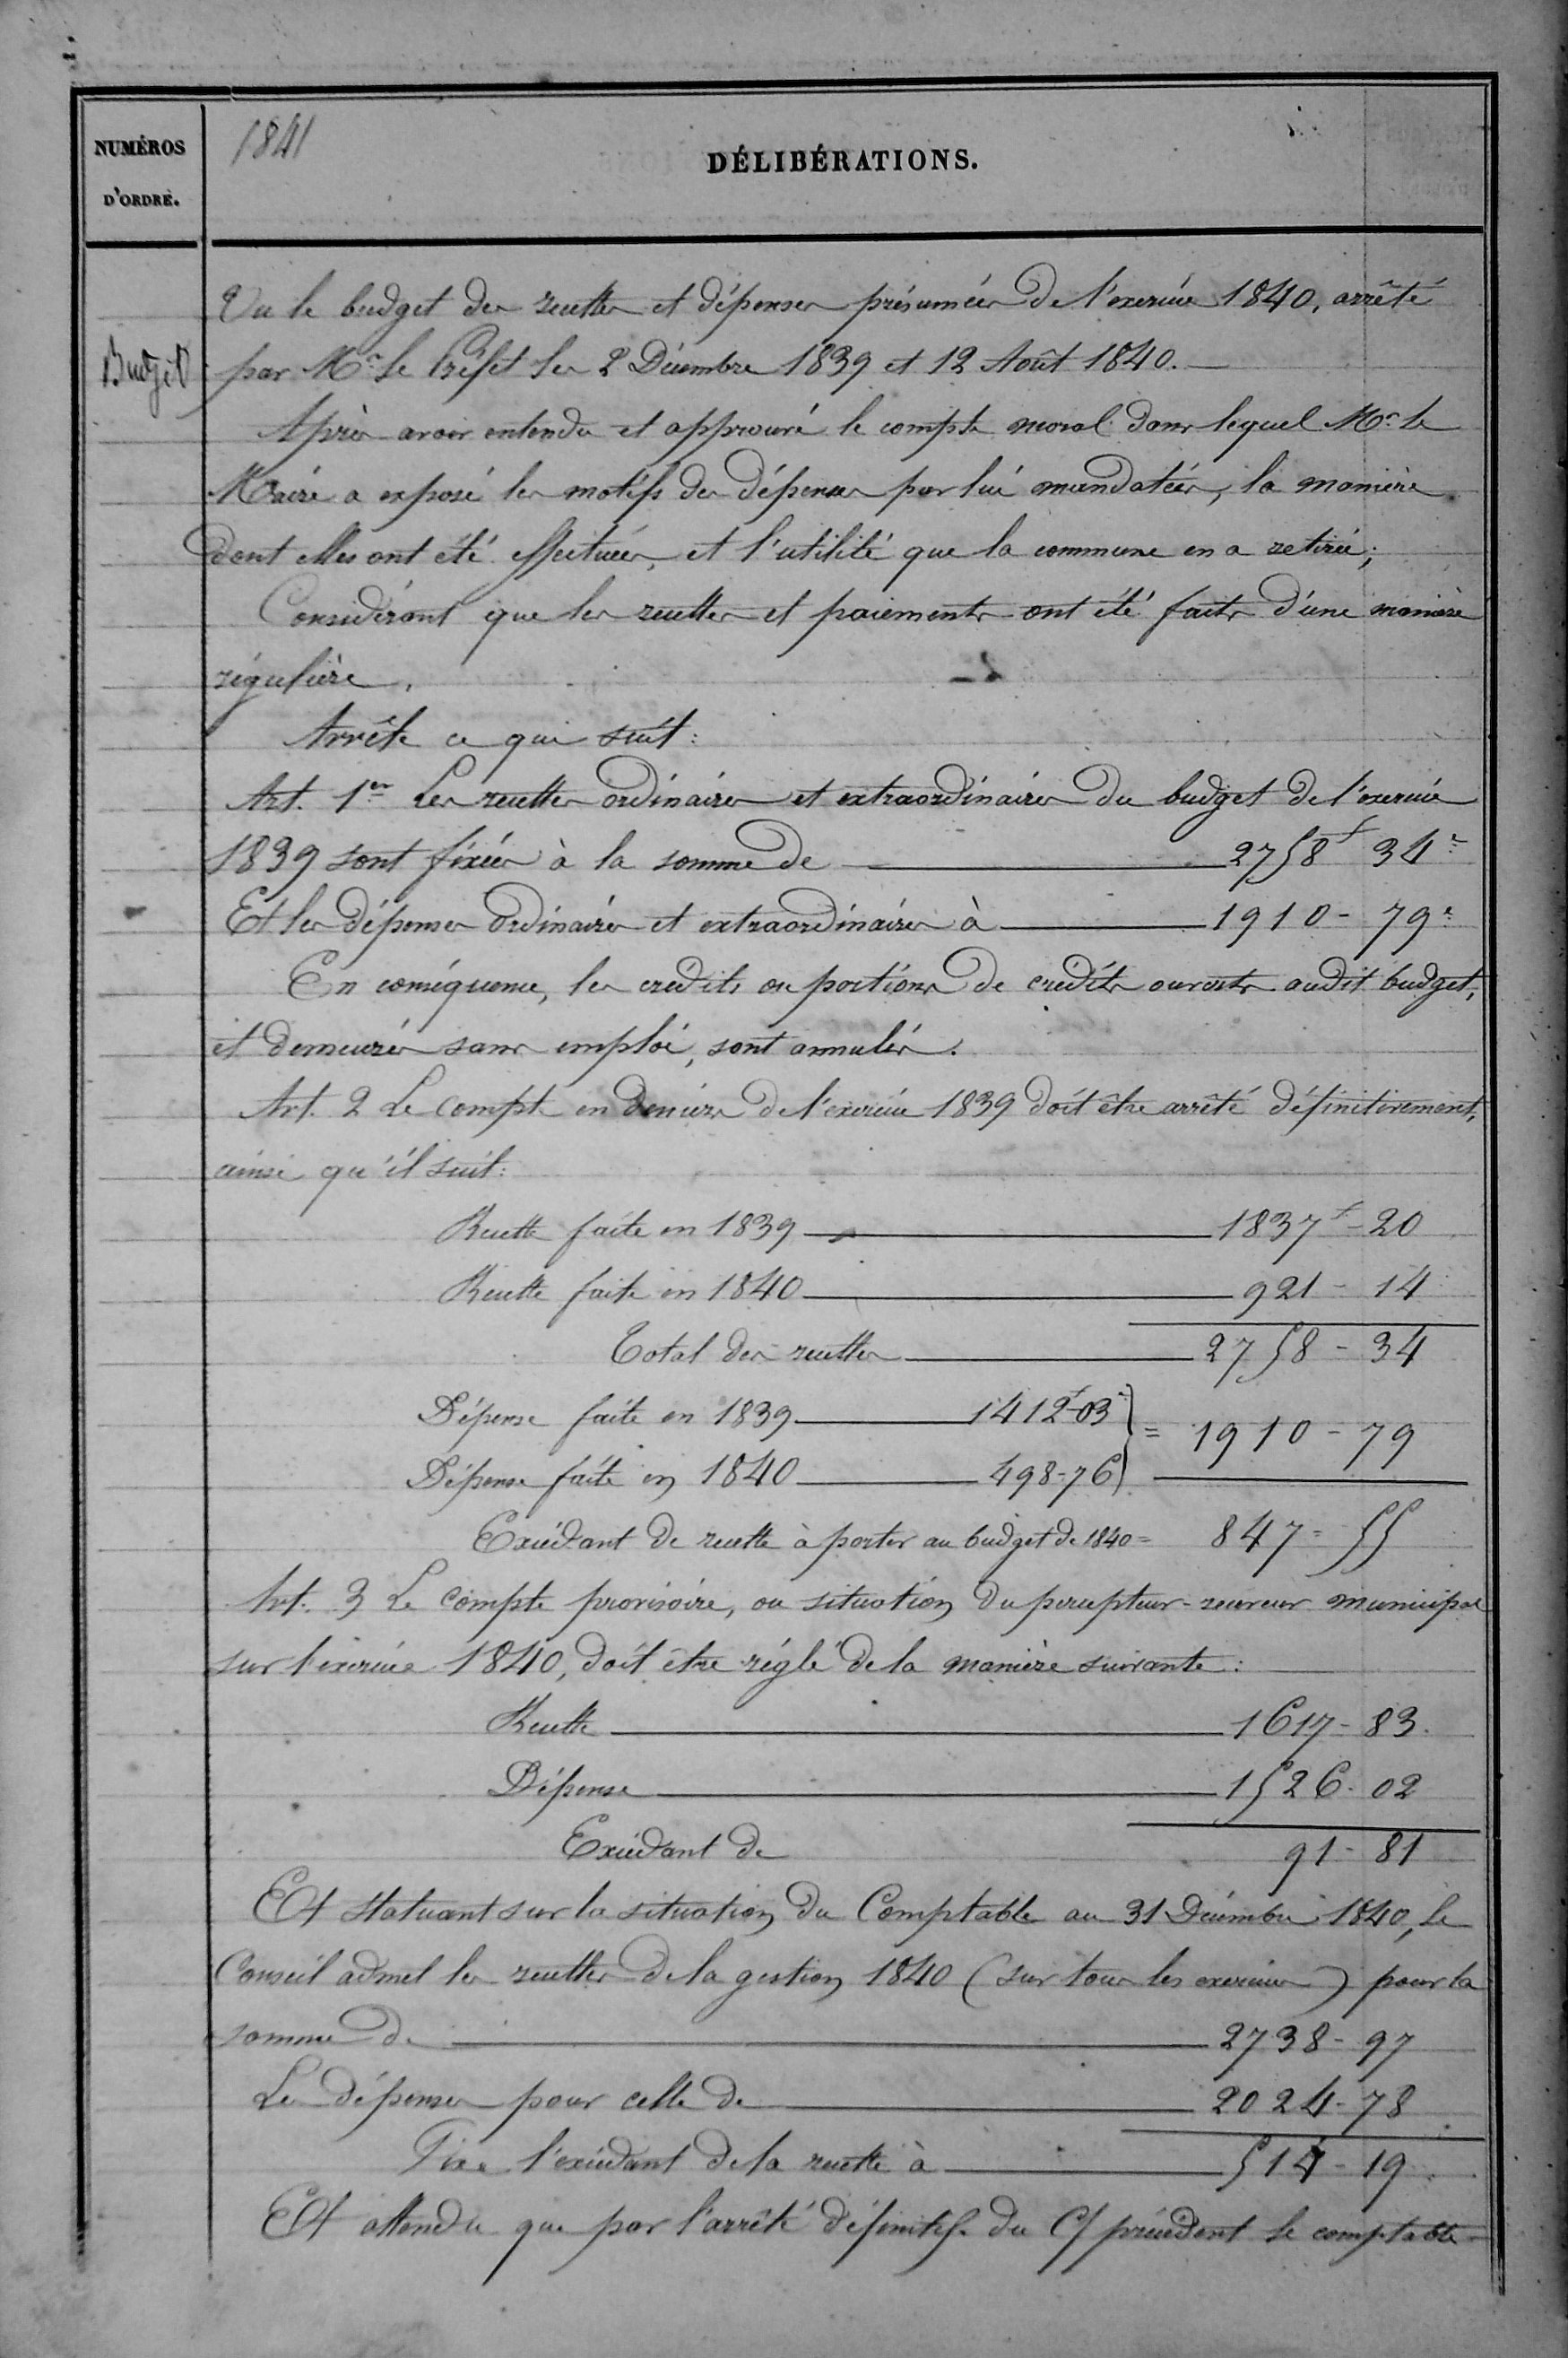 NUMÉROS
D'ORDRE.
1841
DÉLIBÉRATIONS.
Budget
Vu le budget des recettes et dépenses présumées de l'exercice 1840, arrêté
par Mr. le Préfet les 2 Décembre 1839 et 12 Août 1840.
Après avoir entendu et approuvé le compte moral dans lequel Mr. le
Maire a exposé les motifs des dépenses par lui mandatées, la manière
dont elles ont été effectuées, et l'utilité que la commune en a retirée;
Considérant que les recettes et paiements ont été faits d'une manière
régulière,
Arrête ce qui suit:
Art. 1er Les recettes ordinaires et extraordinaires du budget de l'exercice
1839 sont fixées à la somme de 2758f 34c
Et les dépenses ordinaires et extraordinaires à 1910 - 79c
En conséquence, les crédits ou portions de crédits ouverts audit budget,
et demeurés sans emploi, sont annulés.
Art. 2 Le compte en deniers de l'exercice 1839 doit être arrêté définitivement,
ainsi qu'il suit:
Recette faite en 1839 1837f - 20
Recette faite en 1840 921 - 14
Total des recettes 2758 - 34
Dépense faite en 1839 1412f-03 } = 1910 - 79
Dépense faite en 1840 498-76 }
Excédant de recette à porter au budget de 1840 = 847 = 55
Art. 3 Le compte provisoire, ou situation du percepteur-receveur municipal
sur l'exercice 1840, doit être réglé de la manière suivante:
Recette 1617 - 83.
Dépense 1526 - 02
Excédant de 91 - 81
Et statuant sur la situation du Comptable au 31 Décembre 1840, le
Conseil admet les recettes de la gestion 1840 (sur tous les exercices) pour la
somme de 2738 - 97
Les dépenses pour celle de 2024 - 78
Fixe l'excédant de la recette à 514 - 19
Et attendu que par l'arrêté définitif du C/ précédent le comptable